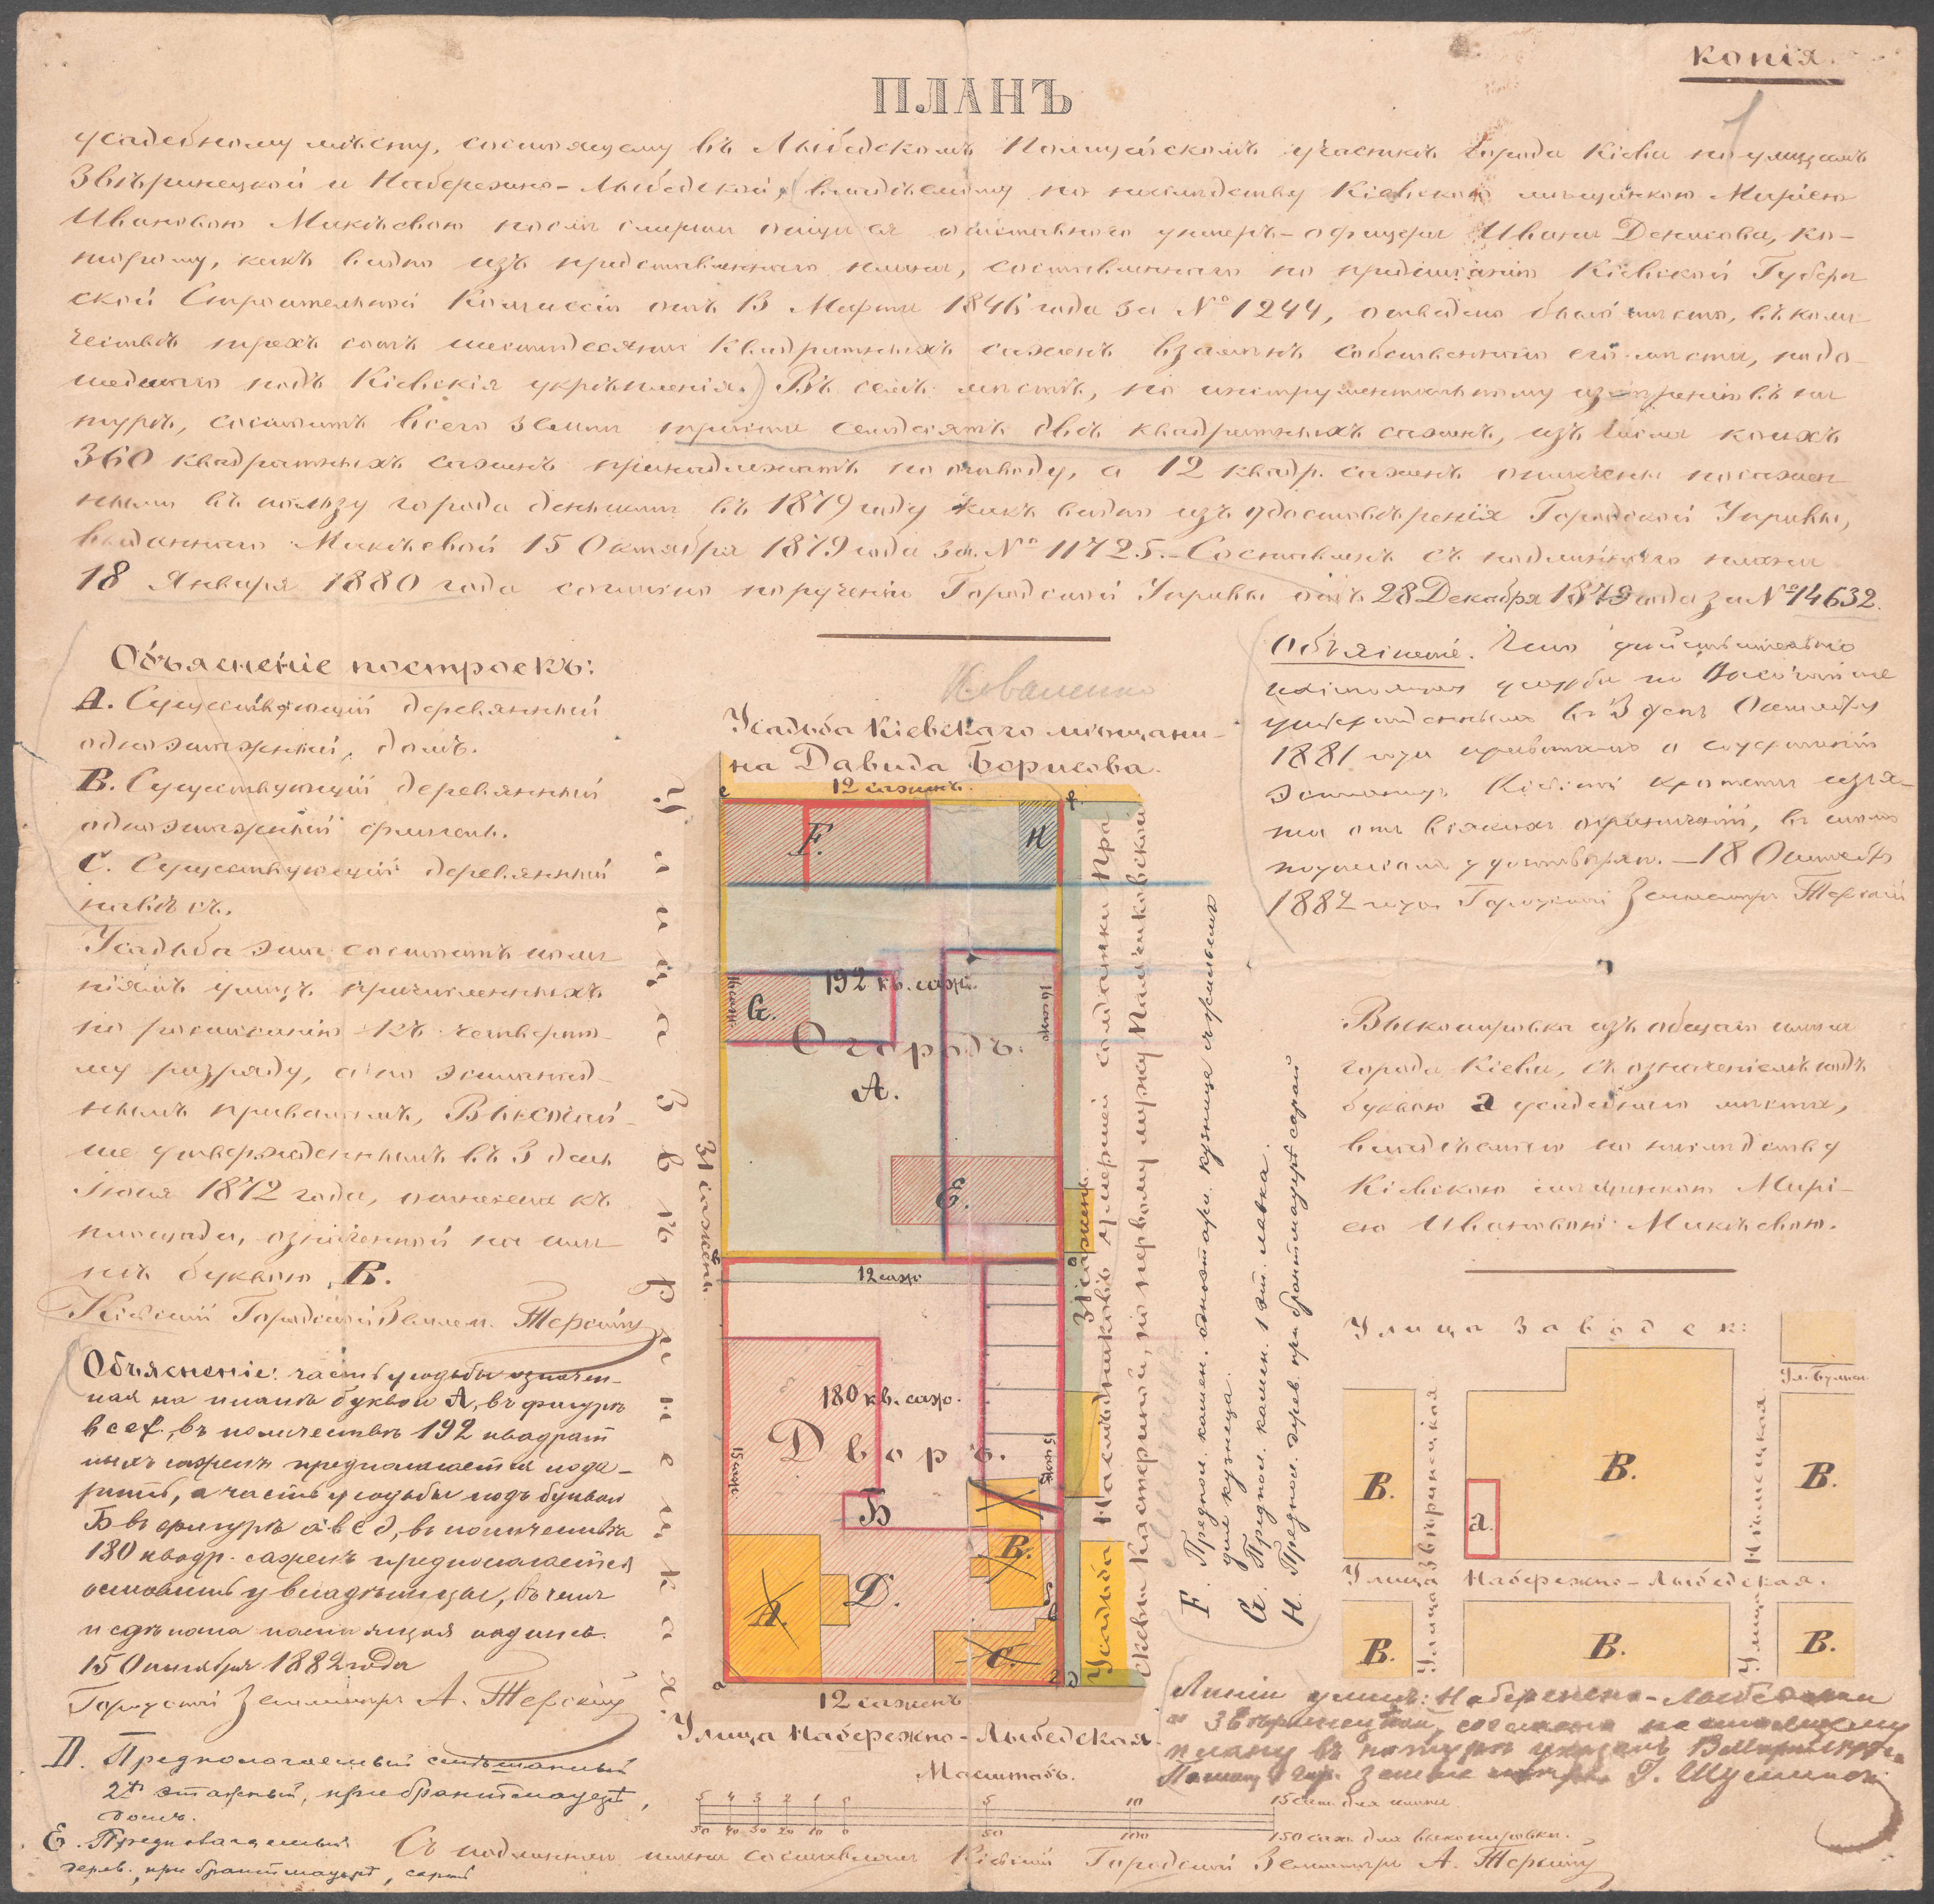 копія.
1
ПЛАНЪ
усадебному мѣсту, состоящему въ Лыбедскомъ Полицейскомъ участкѣ города Кіева по улицамъ
Звѣринецкой и Набережно-Лыбедской, владѣемому по наслѣдству Кіевскою мѣщанкою Маріею
Ивановою Микѣевою послѣ смерти отца ея отставного унтеръ-офицера Ивана Денисова, ко-
торому, какъ видно изъ представленнаго плана, составленнаго по предписанію Кіевской Губерн
ской Строительной Комиссіи отъ 13 Марта 1846 года за № 1244, отведено было мѣсто, въ коли-
чествѣ трехъ сотъ шестидесяти квадратныхъ сажень взамѣнъ собственнаго его мѣста, подо-
шедшаго подъ Кіевскія укрѣпленія. Въ семъ мѣстѣ, по инструментальному измѣренію въ на
турѣ, состоитъ всего земли триста семдесятъ двѣ квадратныхъ сажень, изъ числа коихъ
360 квадратныхъ сажень принадлежатъ по отводу, а 12 квадр. сажень оплачены посажен
ными въ пользу города деньгами въ 1879 году какъ видно изъ удостовѣренія Городской Управы,
выданнаго Микѣевой 15 Октября 1879 года за № 11725.- Составленъ съ подлиннаго плана
18 Января 1880 года согласно порученію Городской Управы отъ 28 Декабря 1879 года за № 14632.
Объясненіе построекъ:
А. Существующій деревянный
одноэтажный, домъ.
В. Существующій деревянный
одноэтажный флигель.
С. Существующій деревянный
навѣсъ.
Усадьба эта состоитъ
улицъ причисленныхъ
по росписанію къ четверто-
му разряду, а по эспланад-
нымъ правиламъ, Высочай-
ше утвержденнымъ въ 3 день
Іюля 1872 года, отнесена къ
площади, означенной на пла
нѣ буквою В.
Кіевскій Городской Землем. Терскій
Объясненіе: часть усадьбы означен-
ная на планѣ буквою А, въ фигурѣ
в с е f., въ количествѣ 192 квадрат
ныхъ сажень предполагается пода-
рить, а часть усадьбы подъ буквою
Б въ фигурѣ а в с d, въ количествѣ
180 квадр. сажень предполагается
оставить у владѣлицы, въ чемъ
и сдѣлана настоящая надпись.
15 Октября 1882 года
Городской Землемѣръ А. Терскій
D. Предполагаемый смѣшанный
2хъ этажный, при брантмауерѣ,
домъ.
Е. Предполагаемый
дерев., при брантмауерѣ, сарай
Коваленко
Усадьба Кіевскаго мѣщани-
на Давида Борисова.
12 сажень.
е
f.
F.
Н
192 кв. саж.
16 саж.
16 саж.
G.
Огородъ.
А.
Е.
31 сажень.
31 сажень.
в
с
12 саж.
180 кв. саж.
15 саж.
15 саж.
Дворъ.
Б
В.
А.
D.
С.
а
д
12 сажень
Улица Звѣринецкая.
Усадьба Наслѣдниковъ умершей солдатки Пра
сковьи Кастериной, по первому мужу Палѣнковской
Улица Набережно-Лыбедская.
Масштабъ.
5 4 3 2 1 0 5 10 15 саж. для плана
50 40 30 20 10 0 50 100 150 саж. для выкопировки.
Съ подлиннаго плана составлялъ Кіевскій Городской Землемѣръ А. Терскій
F. Предпол. камен. одноэтажн. кузница съ жильемъ
для кузнеца.
G. Предпол. камен. 1 эт. лавка.
Н. Предпол. дерев. при брантмауерѣ сарай
Объясненіе. Что дѣйствительно
настоящая усадьба по Высочайше
утвержденнымъ въ 3 день Октября
1881 года правиламъ о
эспланадѣ Кіевской крѣпости изъя-
та отъ всякихъ ограниченій, въ томъ
подписомъ удостовѣряю. - 18 Октября
1882 года Городской Землемѣръ Терскій
Выкопировка изъ общаго плана
города Кіева, съ означеніемъ подъ
буквою а усадебнаго мѣста,
владѣемаго по наслѣдству
Кіевскою мѣщанкою Марі-
ею Ивановою Микѣевою.
Улица Заводск:
Ул. Бульон.
Улица Звѣринецкая.
Улица Нѣмецкая.
В.
В.
В.
а.
Улица Набережно-Лыбедская.
В.
В.
В.
Улица
Улица
Линіи улицъ: Набережно-Лыбедской
и Звѣринецкой, согласно настоящему
плану въ натурѣ указалъ
Помощ. Гор. Землемѣра